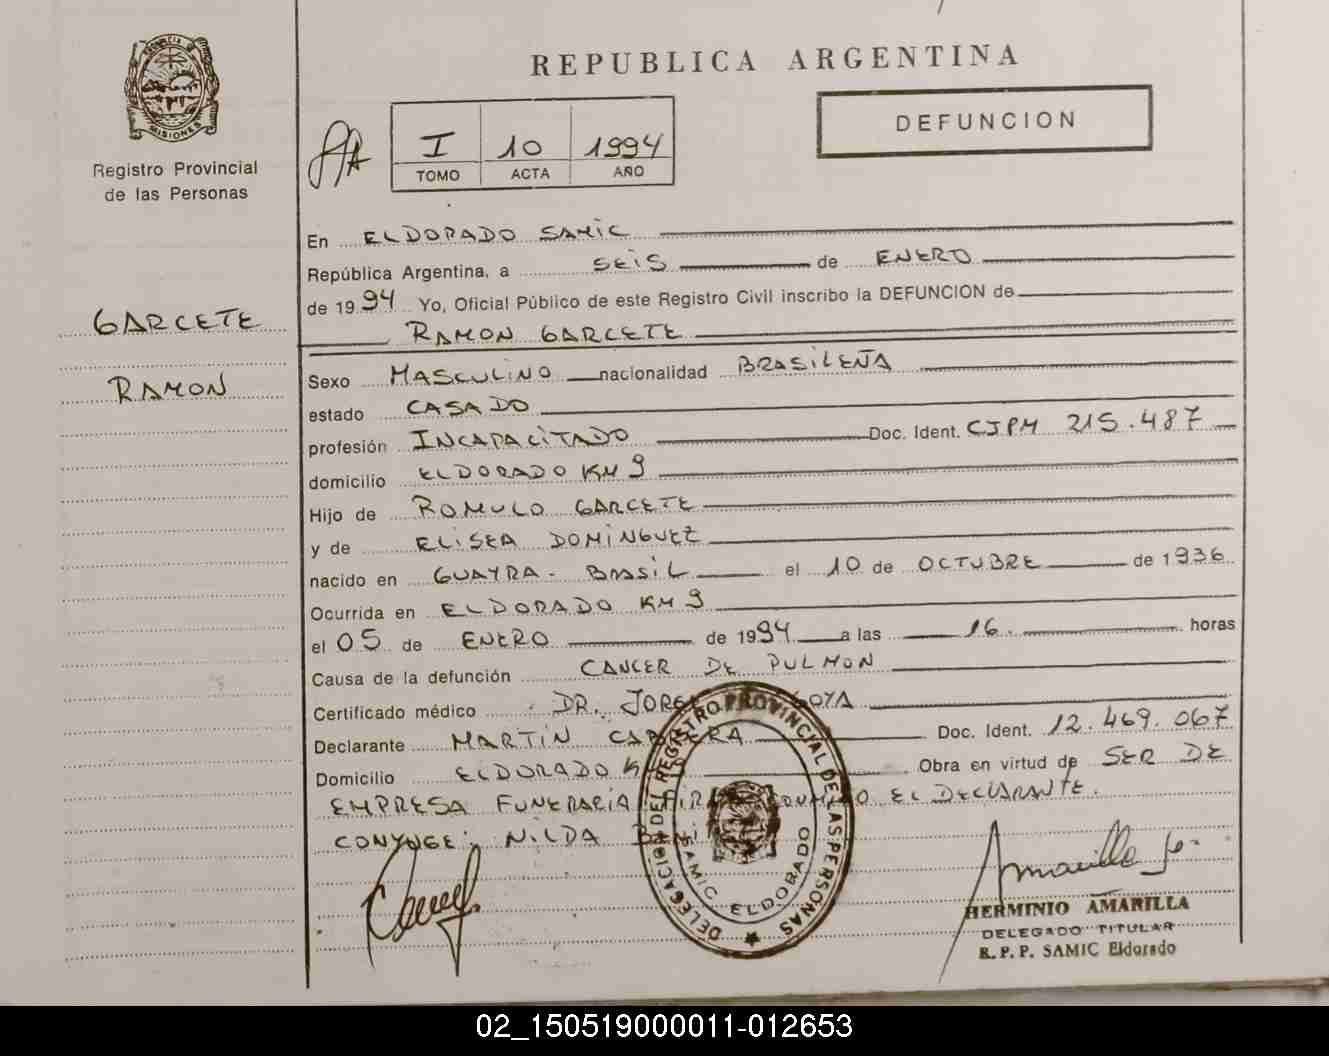 REPUBLICA ARGENTINA
PROVINCIA D MISIONES
Registro Provincial
de las Personas
I 10 1994
TOMO ACTA AÑO
DEFUNCION
GARCETE
RAMON
En ELDORADO SAMIC
República Argentina, a SEIS de ENERO
de 1994 Yo, Oficial Público de este Registro Civil inscribo la DEFUNCION de
RAMON GARCETE
Sexo MASCULINO nacionalidad BRASILEÑA
estado CASADO
profesión INCAPACITADO Doc. Ident. CIPM 215.487
domicilio ELDORADO KM 9
Hijo de ROMULO GARCETE
y de ELISEA DOMINGUEZ
nacido en GUAYRA - BRASIL el 10 de OCTUBRE de 1936
Ocurrida en ELDORADO KM 9
el 05 de ENERO de 1994 a las 16 horas
Causa de la defunción CANCER DE PULMON
Certificado médico DR. JORGE
Declarante MARTIN Doc. Ident. 12.469.067
Domicilio ELDORADO Obra en virtud de SER DE
EMPRESA FUNERARIA EL DECLARANTE.
CONYUGE: NILDA
DELEGACION DEL REGISTRO PROVINCIAL DE LAS PERSONAS
SAMIC ELDORADO
HERMINIO AMARILLA
DELEGADO TITULAR
R. P. P. SAMIC Eldorado
02_150519000011-012653